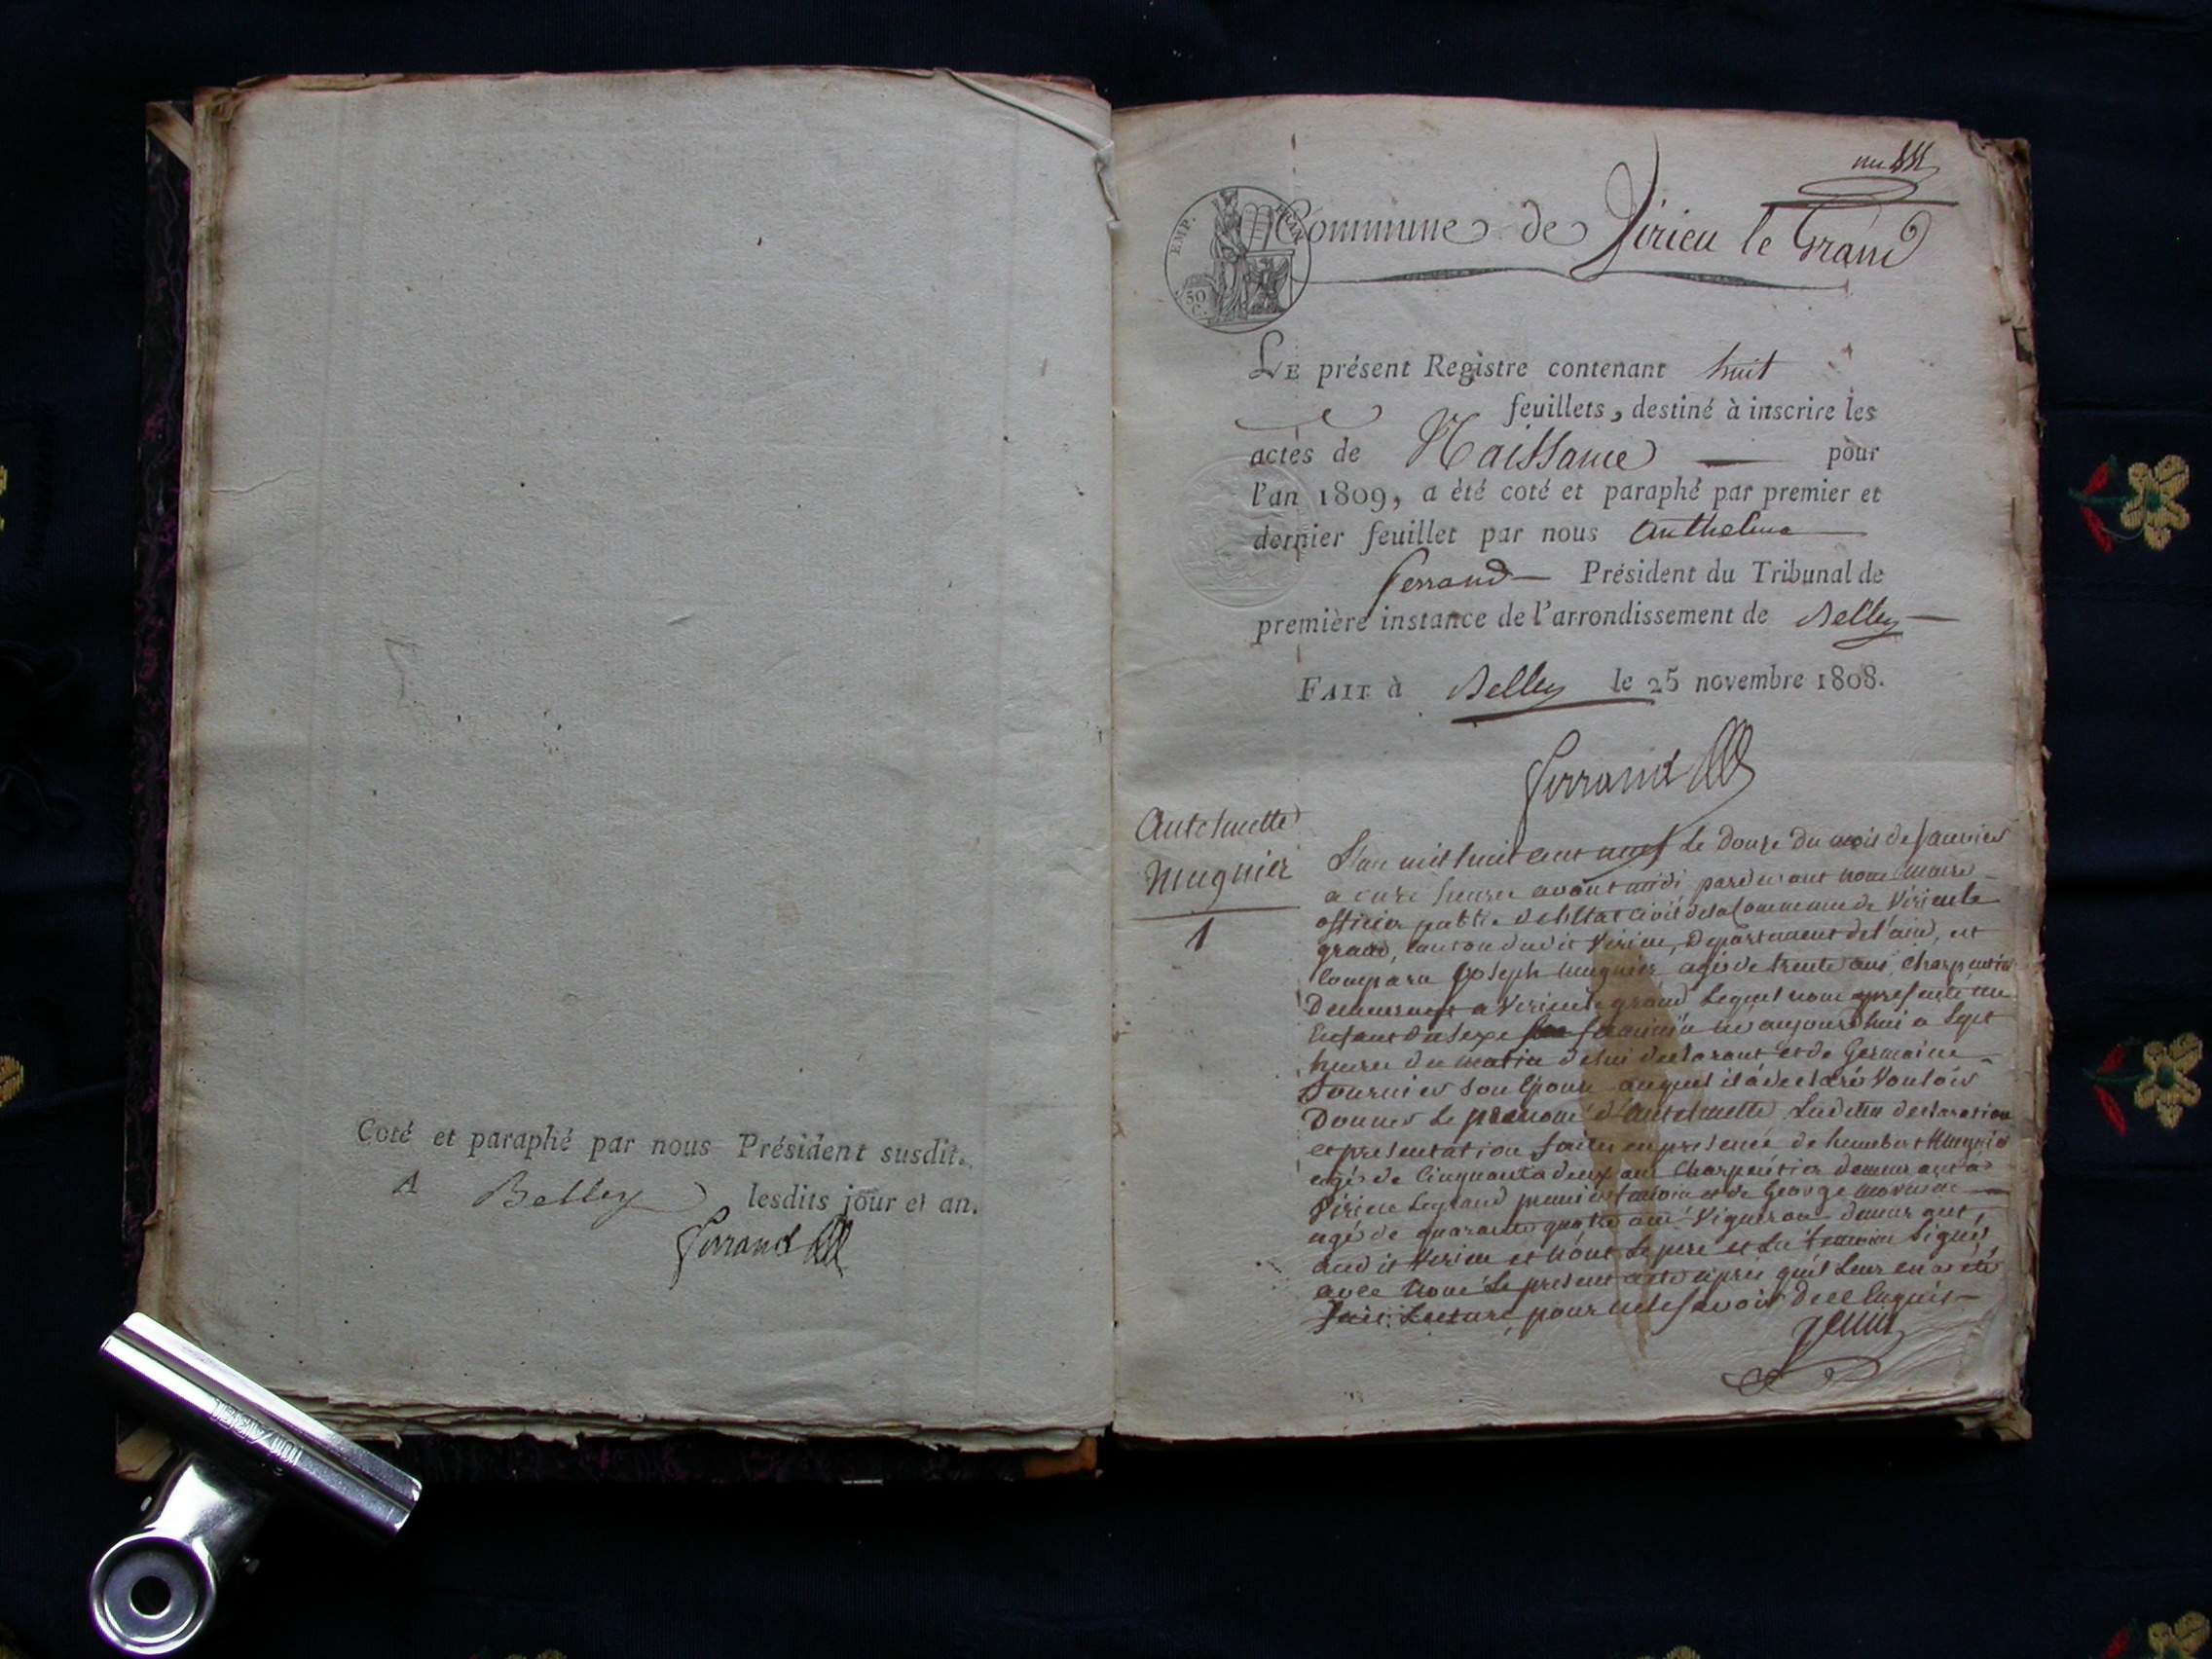 Coté et paraphé par nous Président susdit.
A Belley lesdits jour et an.
Ferrand
EMP. FRAN
50
C.
Commune de Virieu le Grand
LE présent Registre contenant huit
feuillets, destiné à inscrire les
actes de Naissance pour
l'an 1809, a été coté et paraphé par premier et
dernier feuillet par nous Anthelme
Ferrand Président du Tribunal de
première instance de l'arrondissement de Belley
FAIT à Belley le 25 novembre 1808.
Ferrand
Antoinette
Mugnier
1
L'an mil huit cent neuf le douze du mois de Janvier
a onze heures avant midi pardevant nous maire
officier public de l'Etat civil de la Commune de Virieu le
grand, canton dudit Virieu, Departement de l'ain, est
Comparu Joseph mugnier agé de trente ans, Charpentier
Demeurant a Virieu le grand Lequel nous a presenté un
Enfant du sexe feminin né aujourd'hui a Sept
heures du matin de lui declarant et de Germaine
Fournier son Epouse auquel il a declaré Vouloir
Donner le prenom d'antoinette Ladite declaration
et presentation faites en presence de humbert Mugnier
agé de Cinquante deux ans Charpentier demeurant a
Virieu Legrand premier temoin et de George
agé de quarante quatre ans Vigneron demeurant
audit Virieu et n'ont Le pere et Les temoins Signé
avec nous Le present acte après qu'il Leur en a été
fait Lecture, pour ne le savoir de ce Enquis